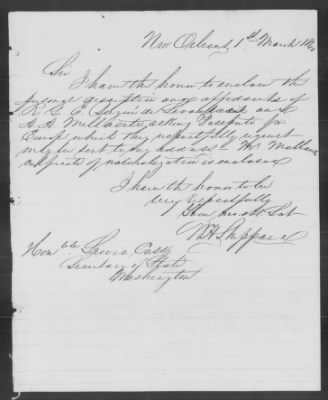 New Orleans, 1st March 1860
Sir
I have the honor to enclose the
personal description and affidavits of
R. E. E. de
A. A. asking Passports for
Europe which they respectfully request
may be sent to my address. Mr
certificate of naturalization is enclosed
I have the honor to be
Very Respectfully
Your most Obt Svt
Sheppard
Honble Lewis Cass
Secretary of State
Washington